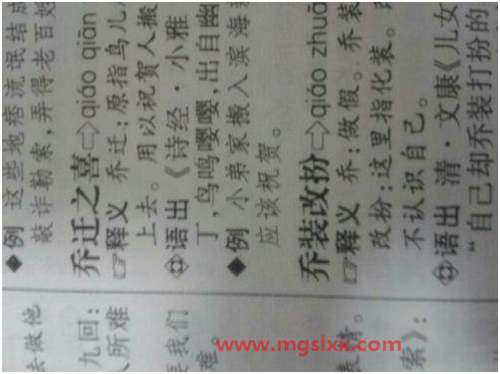 ◆例 这些地痞流氓结成
敲诈勒索,弄得老百姓
乔迁之喜⇨qiáo qiān
☞释义 乔迁:原指鸟儿
上去。用以祝贺人搬
语出 《诗经·小雅
丁,鸟鸣嘤嘤,出自幽
◆例 小弟家搬入滨海
应该祝贺。
乔装改扮⇨qiáo zhuā
☞释义 乔:做假。乔装
改扮:这里指化装。
不认识自己。
语出 清·文康《儿女
“自己却乔装打扮的
去做他
九回:
人所难
要我们
难。
情。
索》:
www.mgslxx.com